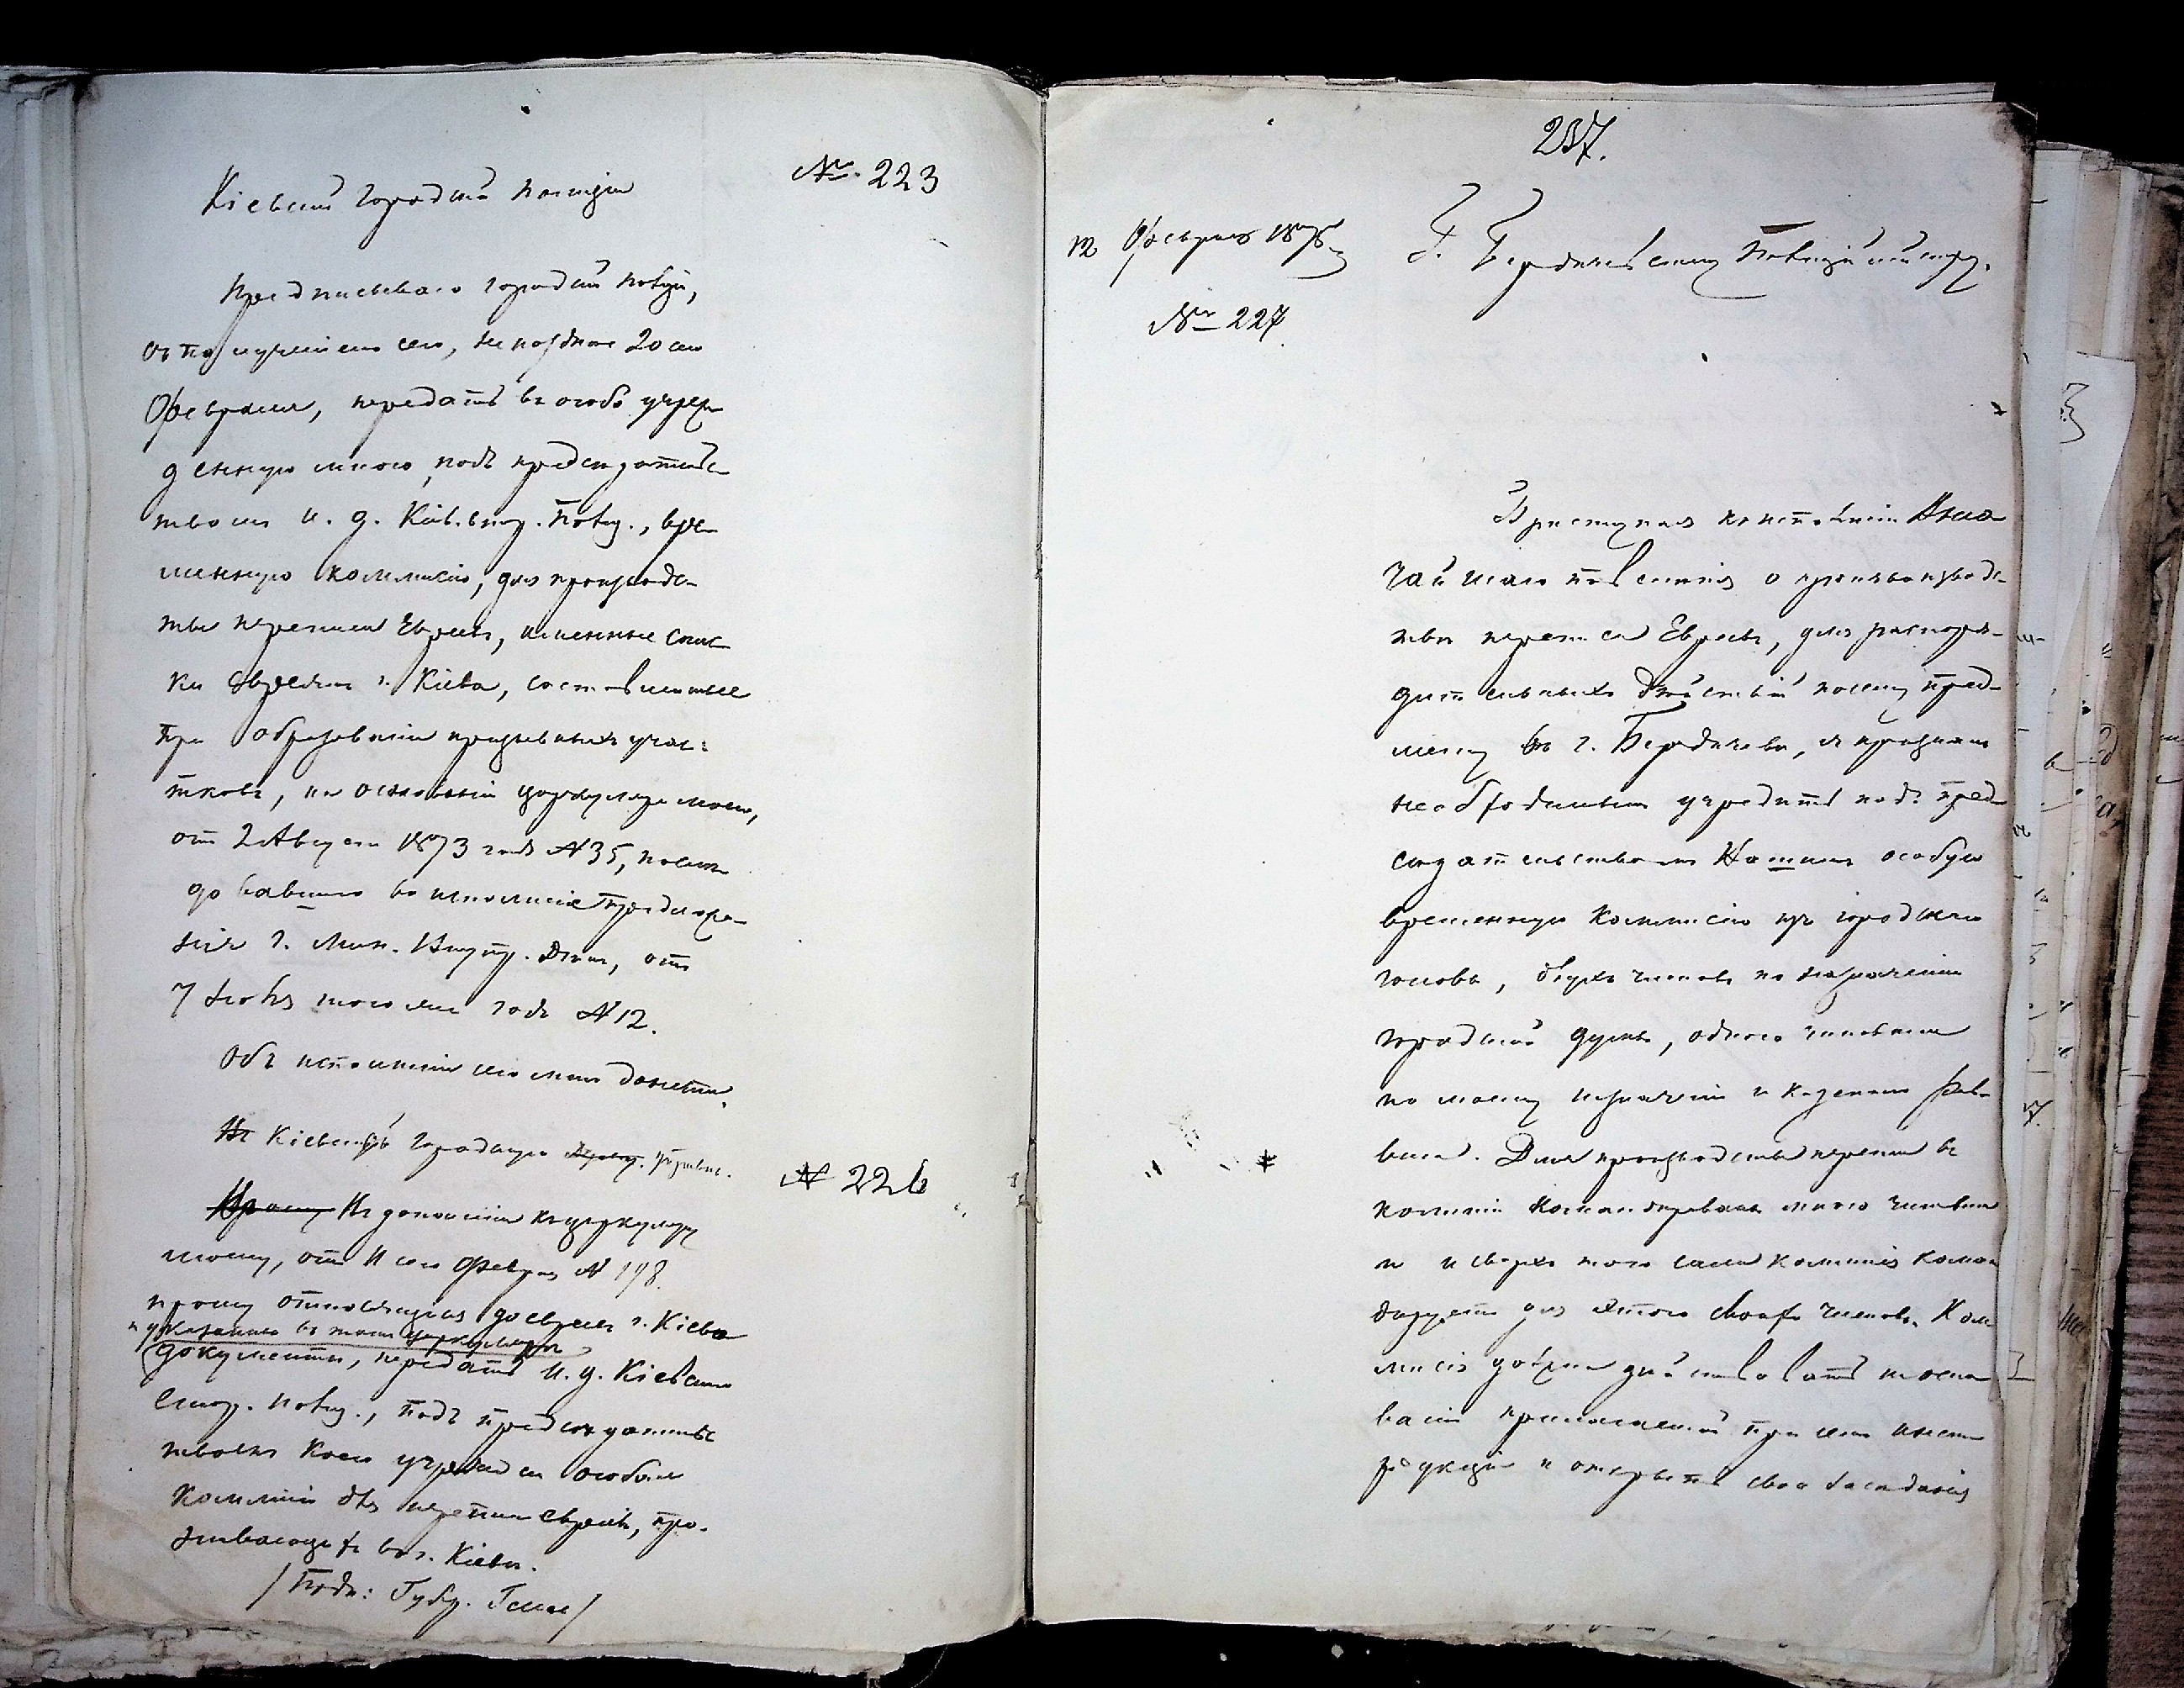 № 223
Кіевской городской полиціи
Предписываю городской полиц.,
съ полученіемъ сего, не позднѣе 20 сего
Февраля, передать въ особо учреж-
денную мною, подъ предсѣдательс-
твомъ и. д. Кіевск. Полиц., вре-
менную коммисію, для производс-
тва переписи Евреевъ, именные спис-
ки евреямъ г. Кіева, составленные
при образованіи призывныхъ учас-
тковъ, на основаніи циркуляра моего,
отъ 2 Августа 1873 года № 35, послѣ-
довавшаго во исполненіе предложе-
нія г. Мин. Внутр. Дѣлъ, отъ
7 того же года № 12.
Объ исполненіи сего мнѣ донести.
Въ Кіевскую Городскую Управу.
№ 226
Прошу Въ дополненіи къ циркуляру
моему, отъ 11 сего Февраля № 198.
прошу относящіяся до евреевъ г. Кіева
и указанные въ томъ циркулярѣ
документы, передать и. д. Кіевскаго
полиц., подъ предсѣдательс-
твомъ коего учреждена особая
коммисія для переписи евреевъ, про-
живающихъ въ г. Кіевѣ.
/Подп: Губер. Гессе/
237.
12 Февраля 1875 г.
№ 227
Г. Бердичевскому Полиціймейстеру.
Приступая къ исполненію Высо-
чайшаго повелѣнія о производс-
твѣ переписи Евреевъ, для распоря-
дительныхъ дѣйствій по сему пред-
мету въ г. Бердичевѣ, я призналъ
необходимымъ учредить подъ пред-
сѣдательствомъ Вашимъ особую
временную Коммисію изъ городскаго
головы, двухъ членовъ по назначенію
городской думы, одного чиновника
по моему назначенію и казеннаго рав-
вина. Для производства переписи въ
коммисіи командированы мною чиновни-
ки и сверхъ того сама Коммисія коман-
дируетъ для этого своихъ членовъ. Ком-
мисія должна дѣйствовать на осно-
ваніи прилагаемой при семъ инст-
рукціи и открыть свои засѣданія